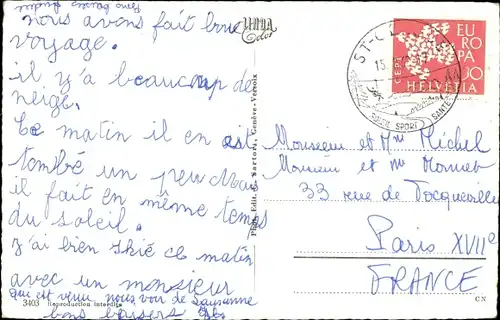 nous avons fait bonne
voyage.
il y'a beaucoup de
neige.
Ce matin il en est
tombé un peu Mais
il fait en même temps
du soleil.
J'ai bien skié ce matin
avec un monsieur
qui est venu nous voir de Lausanne
bons baisers
3403 Reproduction interdite
Photo. Edit. de Sartori, Genève-Vernix
ST-C
15.
SPORT
SANTÉ
C.E.P.T.
EU
RO
PA
HELVETIA
Monsieur et Mme Michel
Monsieur et Mme
33 rue de Tocqueville
Paris XVIIe
FRANCE
CX